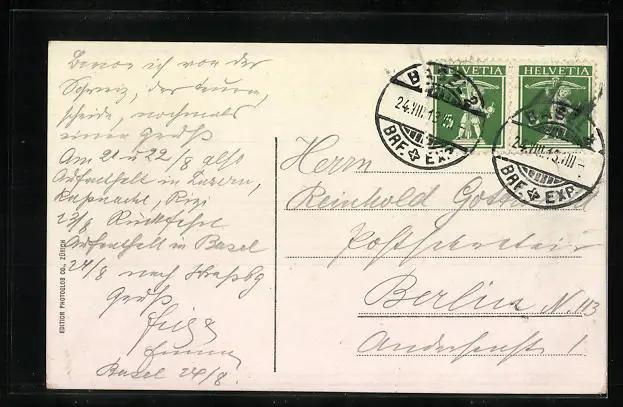 Bevor ich von der
Schweiz, der
scheide, nochmals
einen Gruß
Am 21 u 22/8 
Aufenthalt in Luzern,
Küßnacht, Rigi
23/8 Rückfahrt
Aufenthalt in Basel
24/8 nach Straßbg
Gruß
Basel 24/8.
EDITION PHOTOGLOB CO., ZÜRICH
HELVETIA
HELVETIA
BASEL 2
24.VIII.13
BRF. EXP.
BASEL
24.VIII.13.VIII-
BRF. EXP.
Herrn
Reinhold
Postsekretär
Berlin N. 113
1